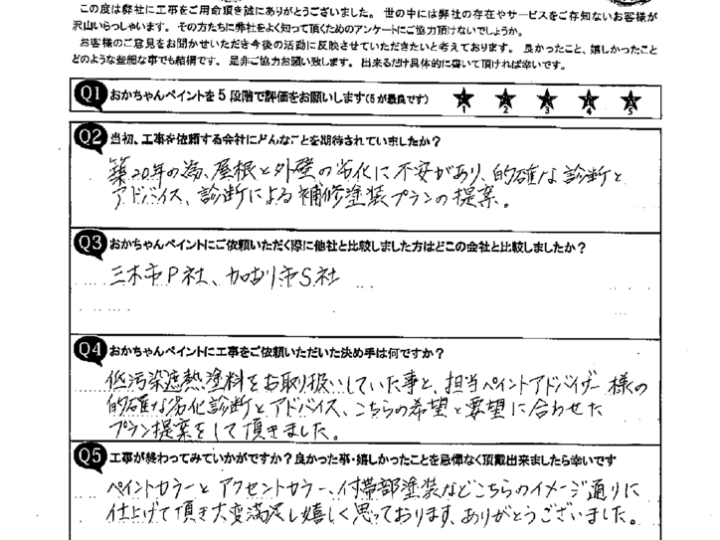 この度は弊社に工事をご用命頂き誠にありがとうございました。世の中には弊社の存在やサービスをご存知ないお客様が
沢山いらっしゃいます。その方たちに弊社をよく知って頂くためのアンケートにご協力頂けないでしょうか。
お客様のご意見をお聞かせいただき今後の活動に反映させていただきたいと考えております。良かったこと、嬉しかったこと
どのような些細な事でも結構です。是非ご協力お願い致します。出来るだけ具体的に書いて頂ければ幸いです。
Q1 おかちゃんペイントを5段階で評価をお願いします(5が最良です) ★1 ★2 ★3 ★4 ★5
Q2 当初、工事を依頼する会社にどんなことを期待されていましたか?
築20年の為、屋根と外壁の劣化に不安があり、的確な診断と
アドバイス、診断による補修塗装プランの提案。
Q3 おかちゃんペイントにご依頼いただく際に他社と比較しました方はどこの会社と比較しましたか?
三木市P社、加古川市S社
Q4 おかちゃんペイントに工事をご依頼いただいた決め手は何ですか?
低汚染遮熱塗料をお取り扱いしていた事と、担当ペイントアドバイザー様の
的確な劣化診断とアドバイス、こちらの希望と要望に合わせた
プラン提案をして頂きました。
Q5 工事が終わってみていかがですか?良かった事・嬉しかったことを忌憚なく頂戴出来ましたら幸いです
ペイントカラーとアクセントカラー、付帯部塗装などこちらのイメージ通りに
仕上げて頂き大変満足し嬉しく思っております、ありがとうございました。